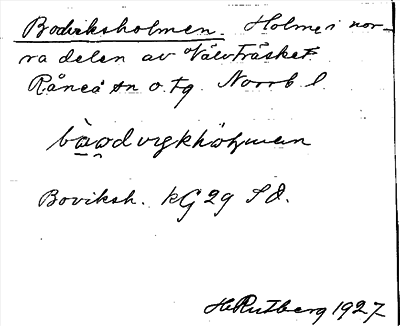 Bodviksholmen. Holme i nor-
ra delen av Välvträsket
Råneå sn o. tg. Norrb l.
Boviksh. kG 29 SO.
H Rutberg 1927